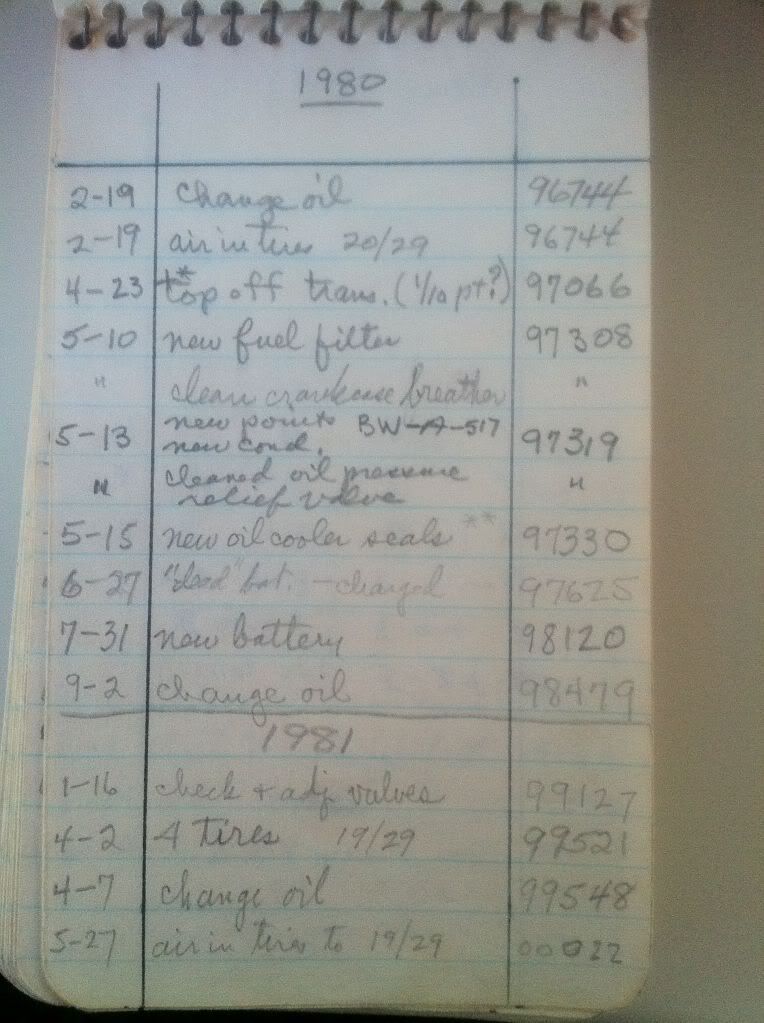 1980
2-19 change oil 96744
2-19 air in tires 20/29 96744
4-23 top* off trans. (1/10 pt?) 97066
5-10 new fuel filter 97308
" clean crankcase breather "
new points BW-A-517
5-13 new cond. 97319
" cleaned oil pressure "
relief valve
5-15 new oil cooler seals ** 97330
6-27 "dead" bat. - charged 97625
7-31 new battery 98120
9-2 change oil 98479
1981
1-16 check + adj. valves 99127
4-2 4 tires 19/29 99521
4-7 change oil 99548
5-27 air in tires to 19/29 00022